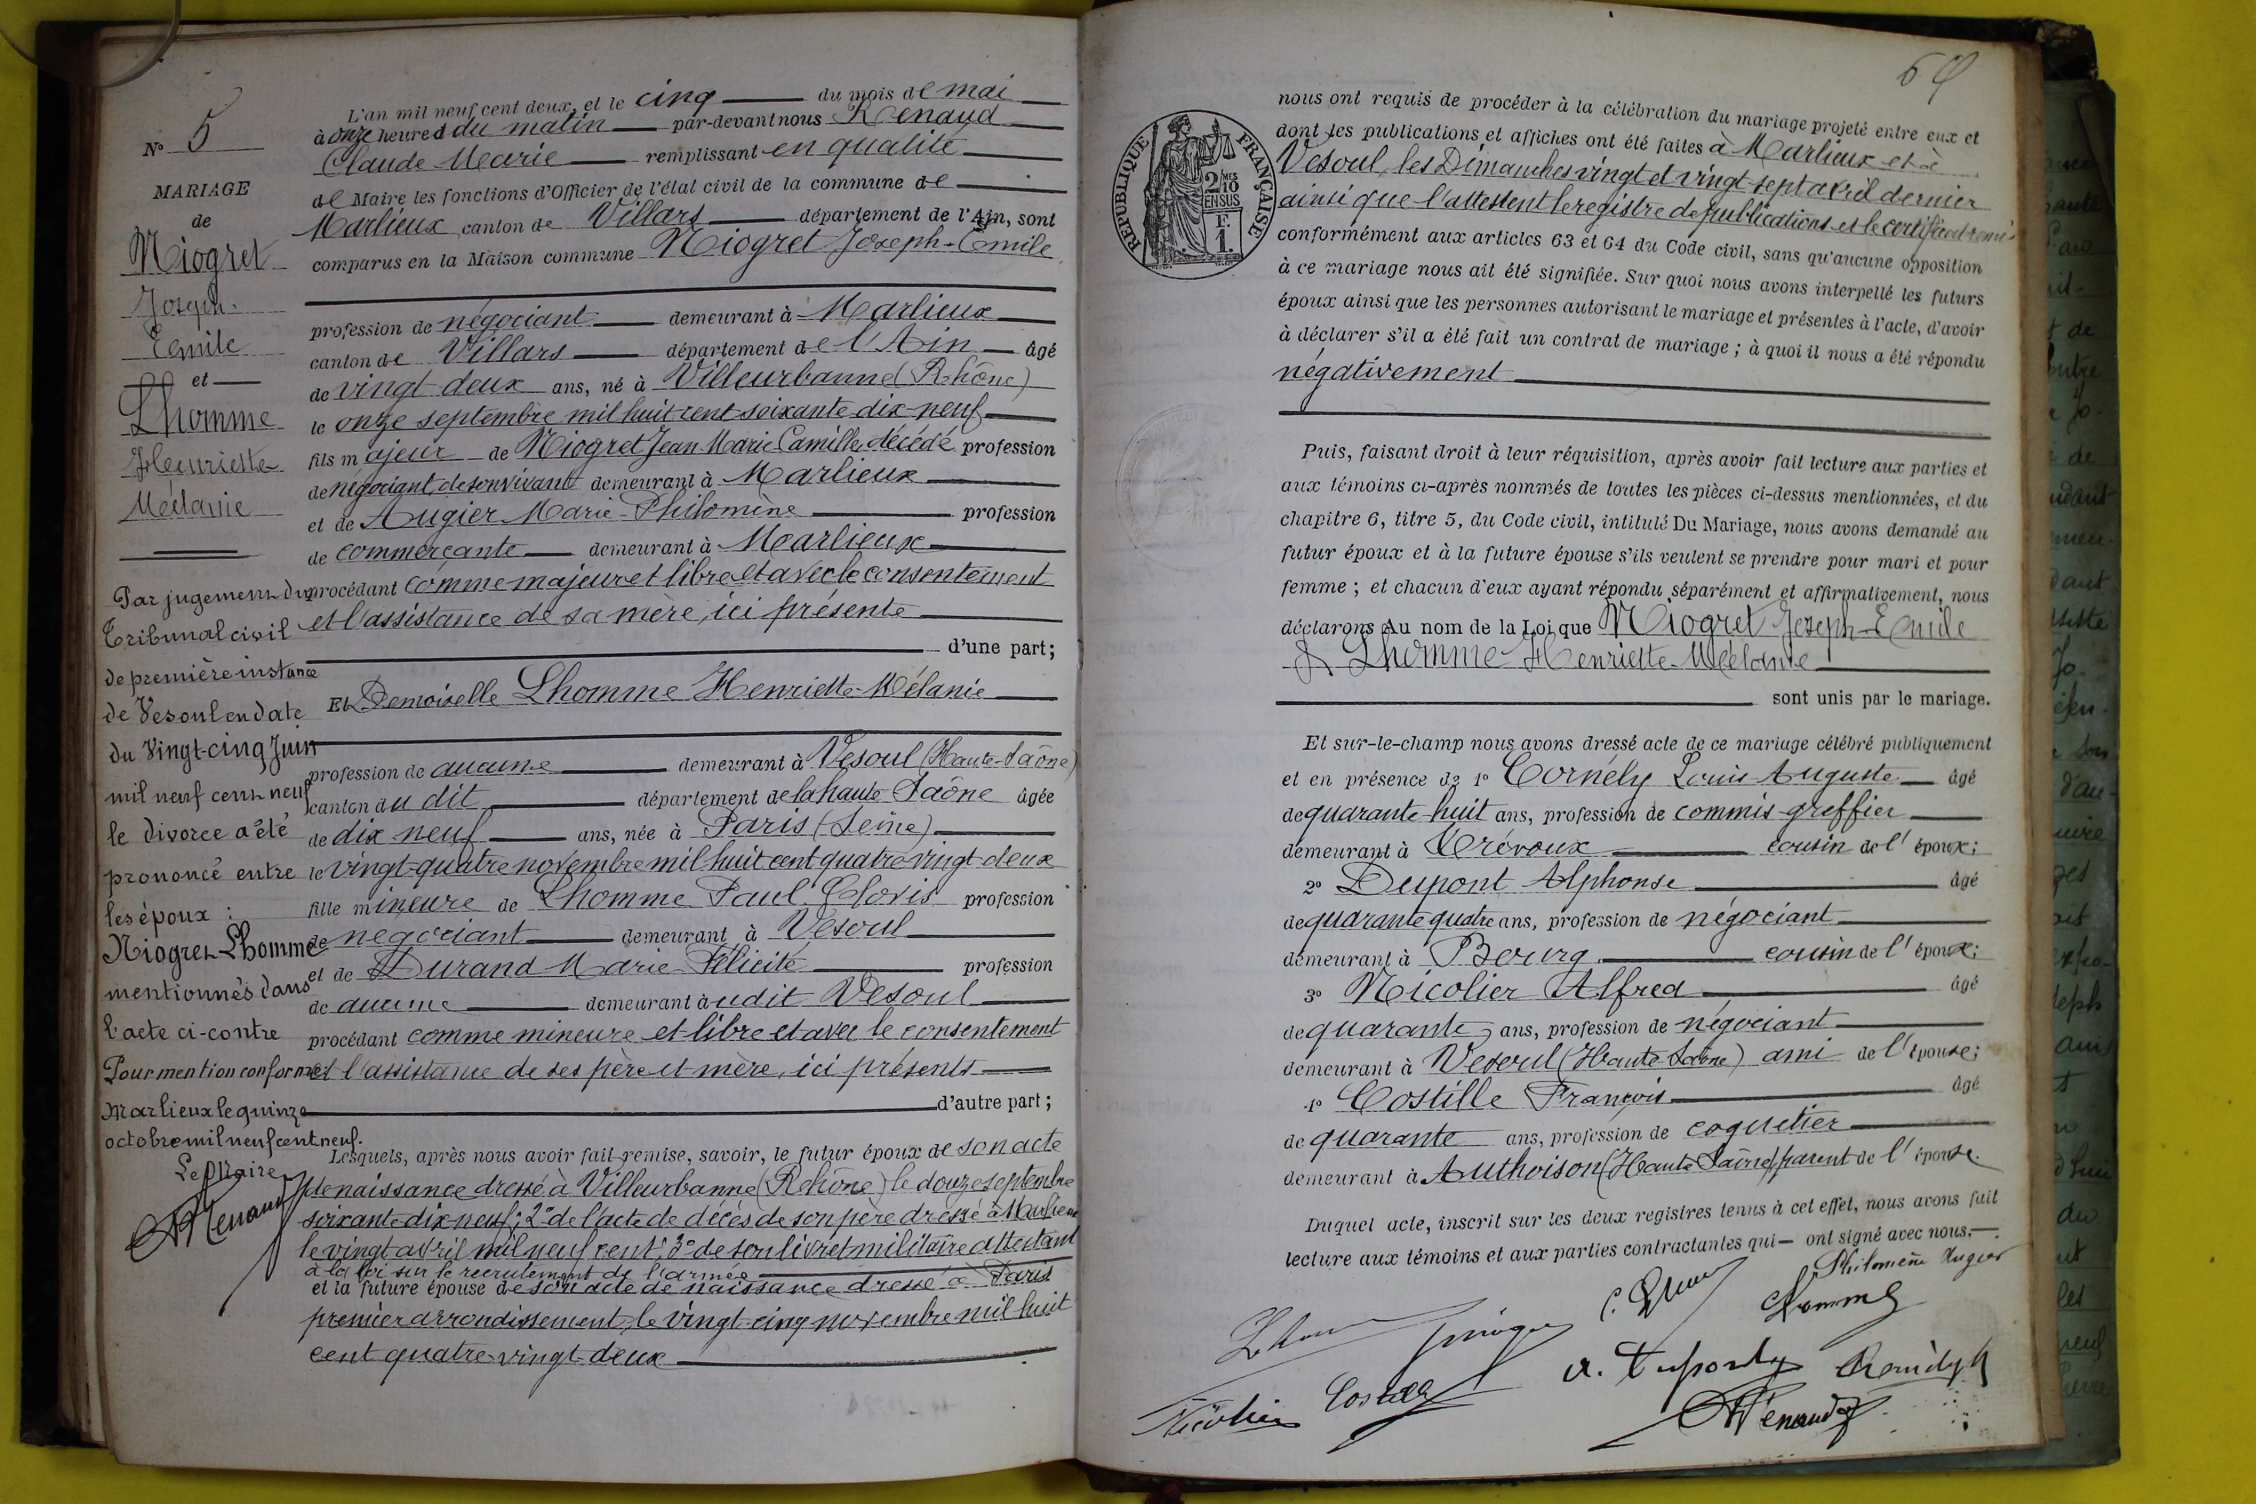 N° 5
MARIAGE
de
Niogret
Joseph-
Emile
et
Lhomme
Henriette
Mélanie
Par jugement du
Tribunal civil
de première instance
de Vesoul en date
du Vingt-cinq Juin
mil neuf cent neuf
le divorce a été
prononcé entre
les époux :
Niogret-Lhomme
mentionnés dans
l'acte ci-contre
Pour mention conforme
Marlieux le quinze
octobre mil neuf cent neuf.
Le Maire
Renaud
L'an mil neuf cent deux, et le cinq du mois de mai
à onze heures du matin par-devant nous Renaud
Claude Marie remplissant en qualité
de Maire les fonctions d'Officier de l'état civil de la commune de
Marlieux canton de Villars département de l'Ain, sont
comparus en la Maison commune Niogret Joseph-Emile
profession de négociant demeurant à Marlieux
canton de Villars département de l'Ain âgé
de vingt deux ans, né à Villeurbanne (Rhône)
le onze septembre mil huit cent soixante dix-neuf
fils majeur de Niogret Jean Marie Camille décédé profession
de négociant, de son vivant demeurant à Marlieux
et de Augier Marie-Philomène profession
de commerçante demeurant à Marlieux
procédant comme majeur et libre et avec le consentement
et l'assistance de sa mère, ici présente
d'une part;
Et Demoiselle Lhomme Henriette-Mélanie
profession de aucune demeurant à Vesoul (Haute-Saône)
canton du dit département de la haute Saône âgée
de dix neuf ans, née à Paris (Seine)
le vingt-quatre novembre mil huit cent quatre-vingt-deux
fille mineure de Lhomme Paul Clovis profession
de négociant demeurant à Vesoul
et de Durand Marie Félicité profession
de aucune demeurant audit Vesoul
procédant comme mineure et libre et avec le consentement
et l'assistance de ses père et mère, ici présents
d'autre part;
Lesquels, après nous avoir fait remise, savoir, le futur époux de son acte
de naissance dressé à Villeurbanne (Rhône) le douze septembre
soixante-dix-neuf; 2° de l'acte de décès de son père dressé à Marlieux
le vingt avril mil neuf cent; 3° de son livret militaire attestant
à la loi sur le recrutement de l'armée
et la future épouse de son acte de naissance dressé à Paris
premier arrondissement, le vingt-cinq novembre mil huit
cent quatre-vingt-deux
RÉPUBLIQUE FRANÇAISE
2/10 MES
EN SUS
F.
1.
nous ont requis de procéder à la célébration du mariage projeté entre eux et
dont les publications et affiches ont été faites à Marlieux et à
Vesoul, les Dimanches vingt et vingt-sept avril dernier
ainsi que l'attestent le registre de publications et le certificat remis
conformément aux articles 63 et 64 du Code civil, sans qu'aucune opposition
à ce mariage nous ait été signifiée. Sur quoi nous avons interpellé les futurs
époux ainsi que les personnes autorisant le mariage et présentes à l'acte, d'avoir
à déclarer s'il a été fait un contrat de mariage; à quoi il nous a été répondu
négativement
Puis, faisant droit à leur réquisition, après avoir fait lecture aux parties et
aux témoins ci-après nommés de toutes les pièces ci-dessus mentionnées, et du
chapitre 6, titre 5, du Code civil, intitulé Du Mariage, nous avons demandé au
futur époux et à la future épouse s'ils veulent se prendre pour mari et pour
femme; et chacun d'eux ayant répondu séparément et affirmativement, nous
déclarons Au nom de la Loi que Niogret Joseph-Emile
& Lhomme Henriette-Mélanie
sont unis par le mariage.
Et sur-le-champ nous avons dressé acte de ce mariage célébré publiquement
et en présence de 1° Cornély Louis Auguste âgé
de quarante-huit ans, profession de commis-greffier
demeurant à Trévoux cousin de l'époux;
2° Dupont Alphonse âgé
de quarante quatre ans, profession de négociant
demeurant à Bourg cousin de l'époux;
3° Nicolier Alfred âgé
de quarante ans, profession de négociant
demeurant à Vesoul (Haute-Saône) ami de l'épouse;
4° Costille François âgé
de quarante ans, profession de coquetier
demeurant à Authoison (Haute Saône) parent de l'épouse.
Duquel acte, inscrit sur les deux registres tenus à cet effet, nous avons fait
lecture aux témoins et aux parties contractantes qui ont signé avec nous.
Philomène Augier
Lhomme
Costille
A. Dupont
Nicolier
Renaud